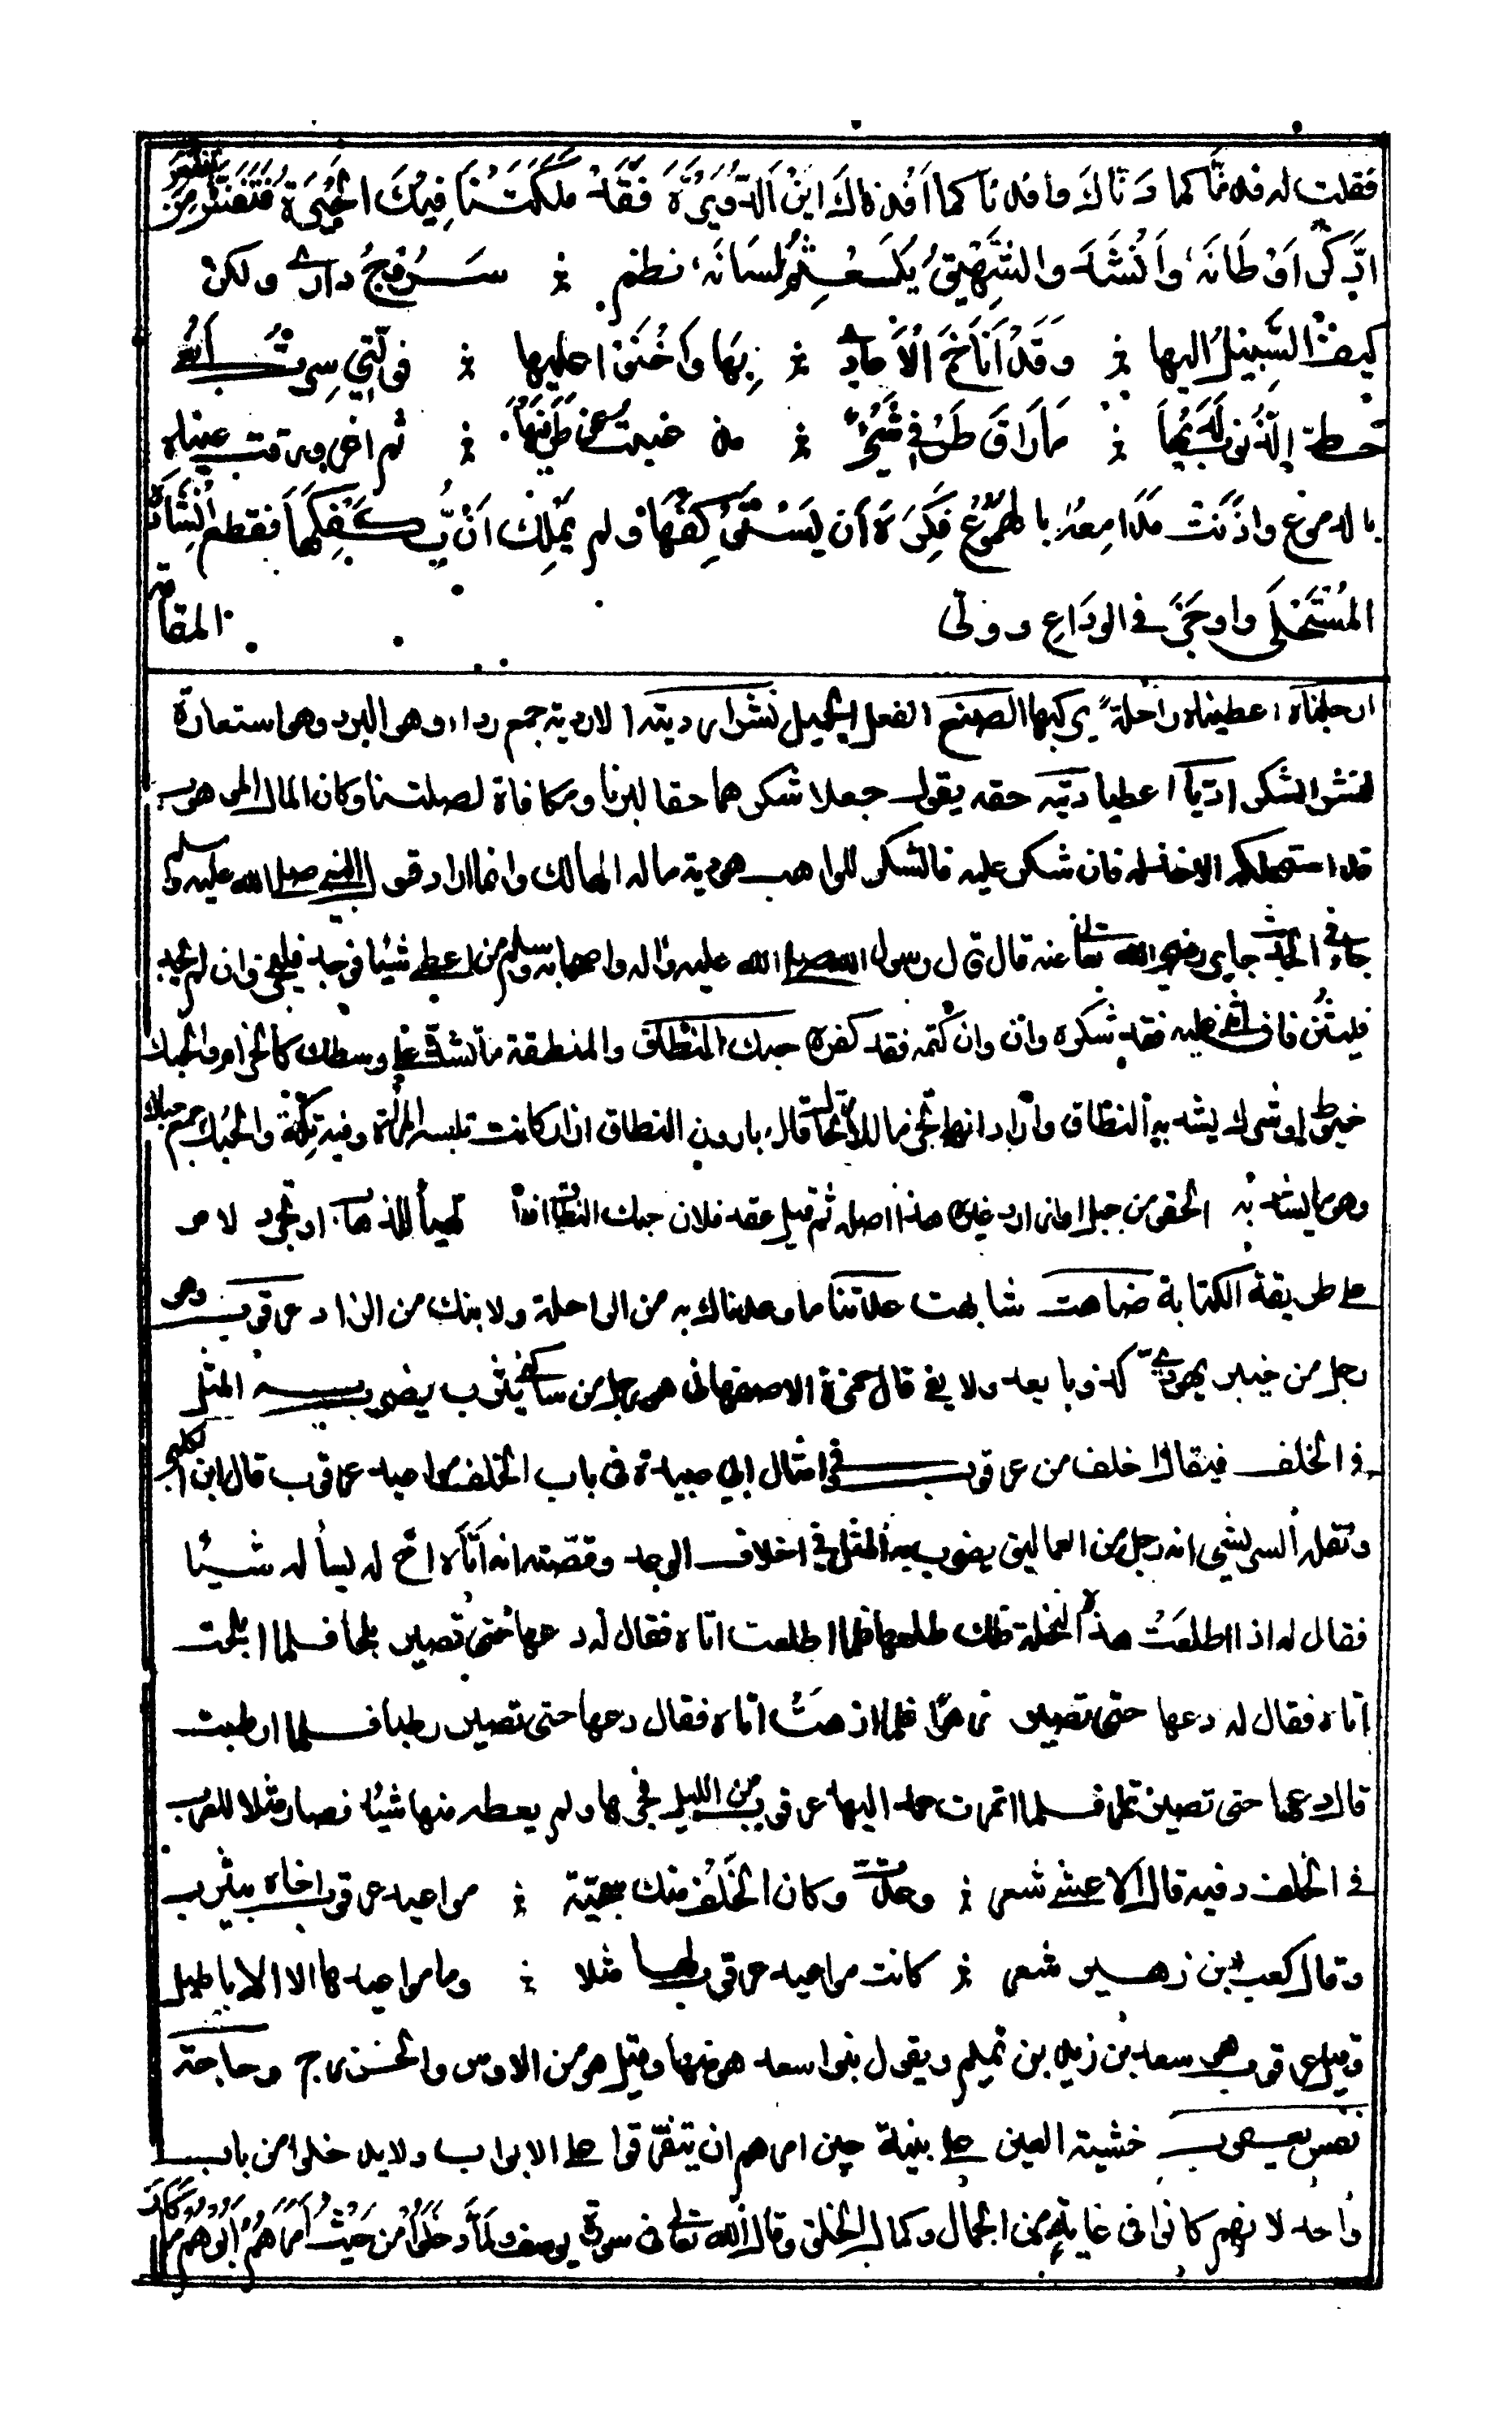 فقلت له فدنا كما دناك وافدنا كما افدناك اين الدويرة فقد ملكتنا فيك الحيرة فتنفس من
ادكر اوطانه وانشد والشهيق يلعثم لسانه نظم سروج داري ولكن
كيف السبيل اليها وقد اناخ الاعادي بها واخنوا عليها فوالتي سرت ابغي
حط الذنوب لديها ما راق طرفي شيء مذ غبت عن طرفيها ثم اغرورقت عيناه
بالدموع واذنت مدامعه بالهموع فكره ان يستوكفها ولم يملك ان يكفكفها فقطع انشاده
المستحلى واوجز في الوداع وولى المقامة
ارحلناه اعطيناه راحلة يركبها الصنع الفعل الجميل نشرا رديته الاردية جمع رداء وهو البرد وهو استعارة
لنشر الشكر اديا اعطيا ديته حقه يقول جعلا شكرهما حقا لبرنا ومكافاة لصلتنا وكان المال الموهوب
قد استهلكه الاخذ له فان شكر عليه فالشكر للواهب هو دية ماله الهالك وانما اراد قول النبي صلى الله عليه وسلم
جاء في الحديث جابر رضي الله تعالى عنه قال قال رسول الله صلى الله عليه واله واصحابه وسلم من اعطى شيئا فوجد فليجز وان لم يجد
فليثن فان اثنى عليه فقد شكره وان كتمه فقد كفره حبك النطاق والمنطقة ما تشد على وسطك كالحزام والحبك
خيط او شراك يشد به النطاق واراد انها تحزما للارتحال قال بارون النطاق ازار كانت تلبسه المراة وفيه تكة والحبك جمع حباك
وهو ما يشد به الحقو من حبل او ازار وغيره هذا اصله ثم قيل عقد فلان حبك النطاق اذا تهيأ للذهاب او تجرد لامر
على طريقة الكناية ضاهت شابهت عدتنا ما وعدناك به من الراحلة ولابنك من الزاد عرقوب وهو
رجل من خيبر يهودي كذوبا يعد ولا يفي قال حمزة الاصفهاني هو رجل من ساكني يثرب يضرب به المثل
في الخلف فيقال اخلف من عرقوب في امثال ابي عبيدة في باب الخلف مواعيد عرقوب قال ابن الكلبي
ونقله السريشي انه رجل من العماليق يضرب به المثل في اخلاف الوعد وقصته انه اتاه اخ له ليسأله شيئا
فقال له اذا اطلعت هذه النخلة فلك طلعها فلما اطلعت اتاه فقال له دعها حتى تصير بلحا فلما ابلحت
اتاه فقال له دعها حتى تصير زهوا فلما ازهت اتاه فقال دعها حتى تصير رطبا فلما ارطبت
قال دعها حتى تصير تمرا فلما اتمرت عمد اليها عرقوب من الليل فجزها ولم يعطه منها شيئا فصار مثلا للعرب
في الخلف وفيه قال الاعشى شعر وعدت وكان الخلف منك سجية مواعيد عرقوب اخاه بيثرب
وقال كعب بن زهير شعر كانت مواعيد عرقوب لها مثلا وما مواعيدها الا الاباطيل
وقيل عرقوب هو سعد بن زيد بن تميم ويقول بنوا سعد هو منها وقيل هو من الاوس والخزرج وحاجة
نفس يعقوب خشية العين على بنيه حين امرهم ان يتفرقوا على الابواب ولا يدخلوا من باب
واحد لانهم كانوا في غاية من الجمال وكمال الخلق وقال الله تعالى في سورة يوسف ولما دخلوا من حيث امرهم ابوهم ما كان